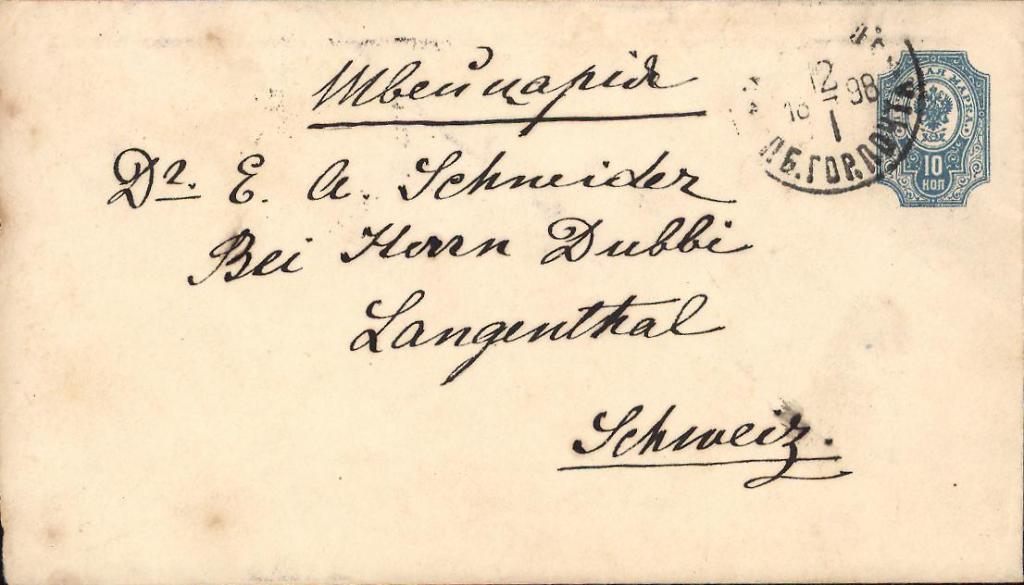 Швейцарія
Dr. E. A. Schneider
Bei Herrn Dubbi
Langenthal
Schweiz.
12
18 98
I
П.Б.ГОР.ПОЧТА
МАРКА
10
КОП